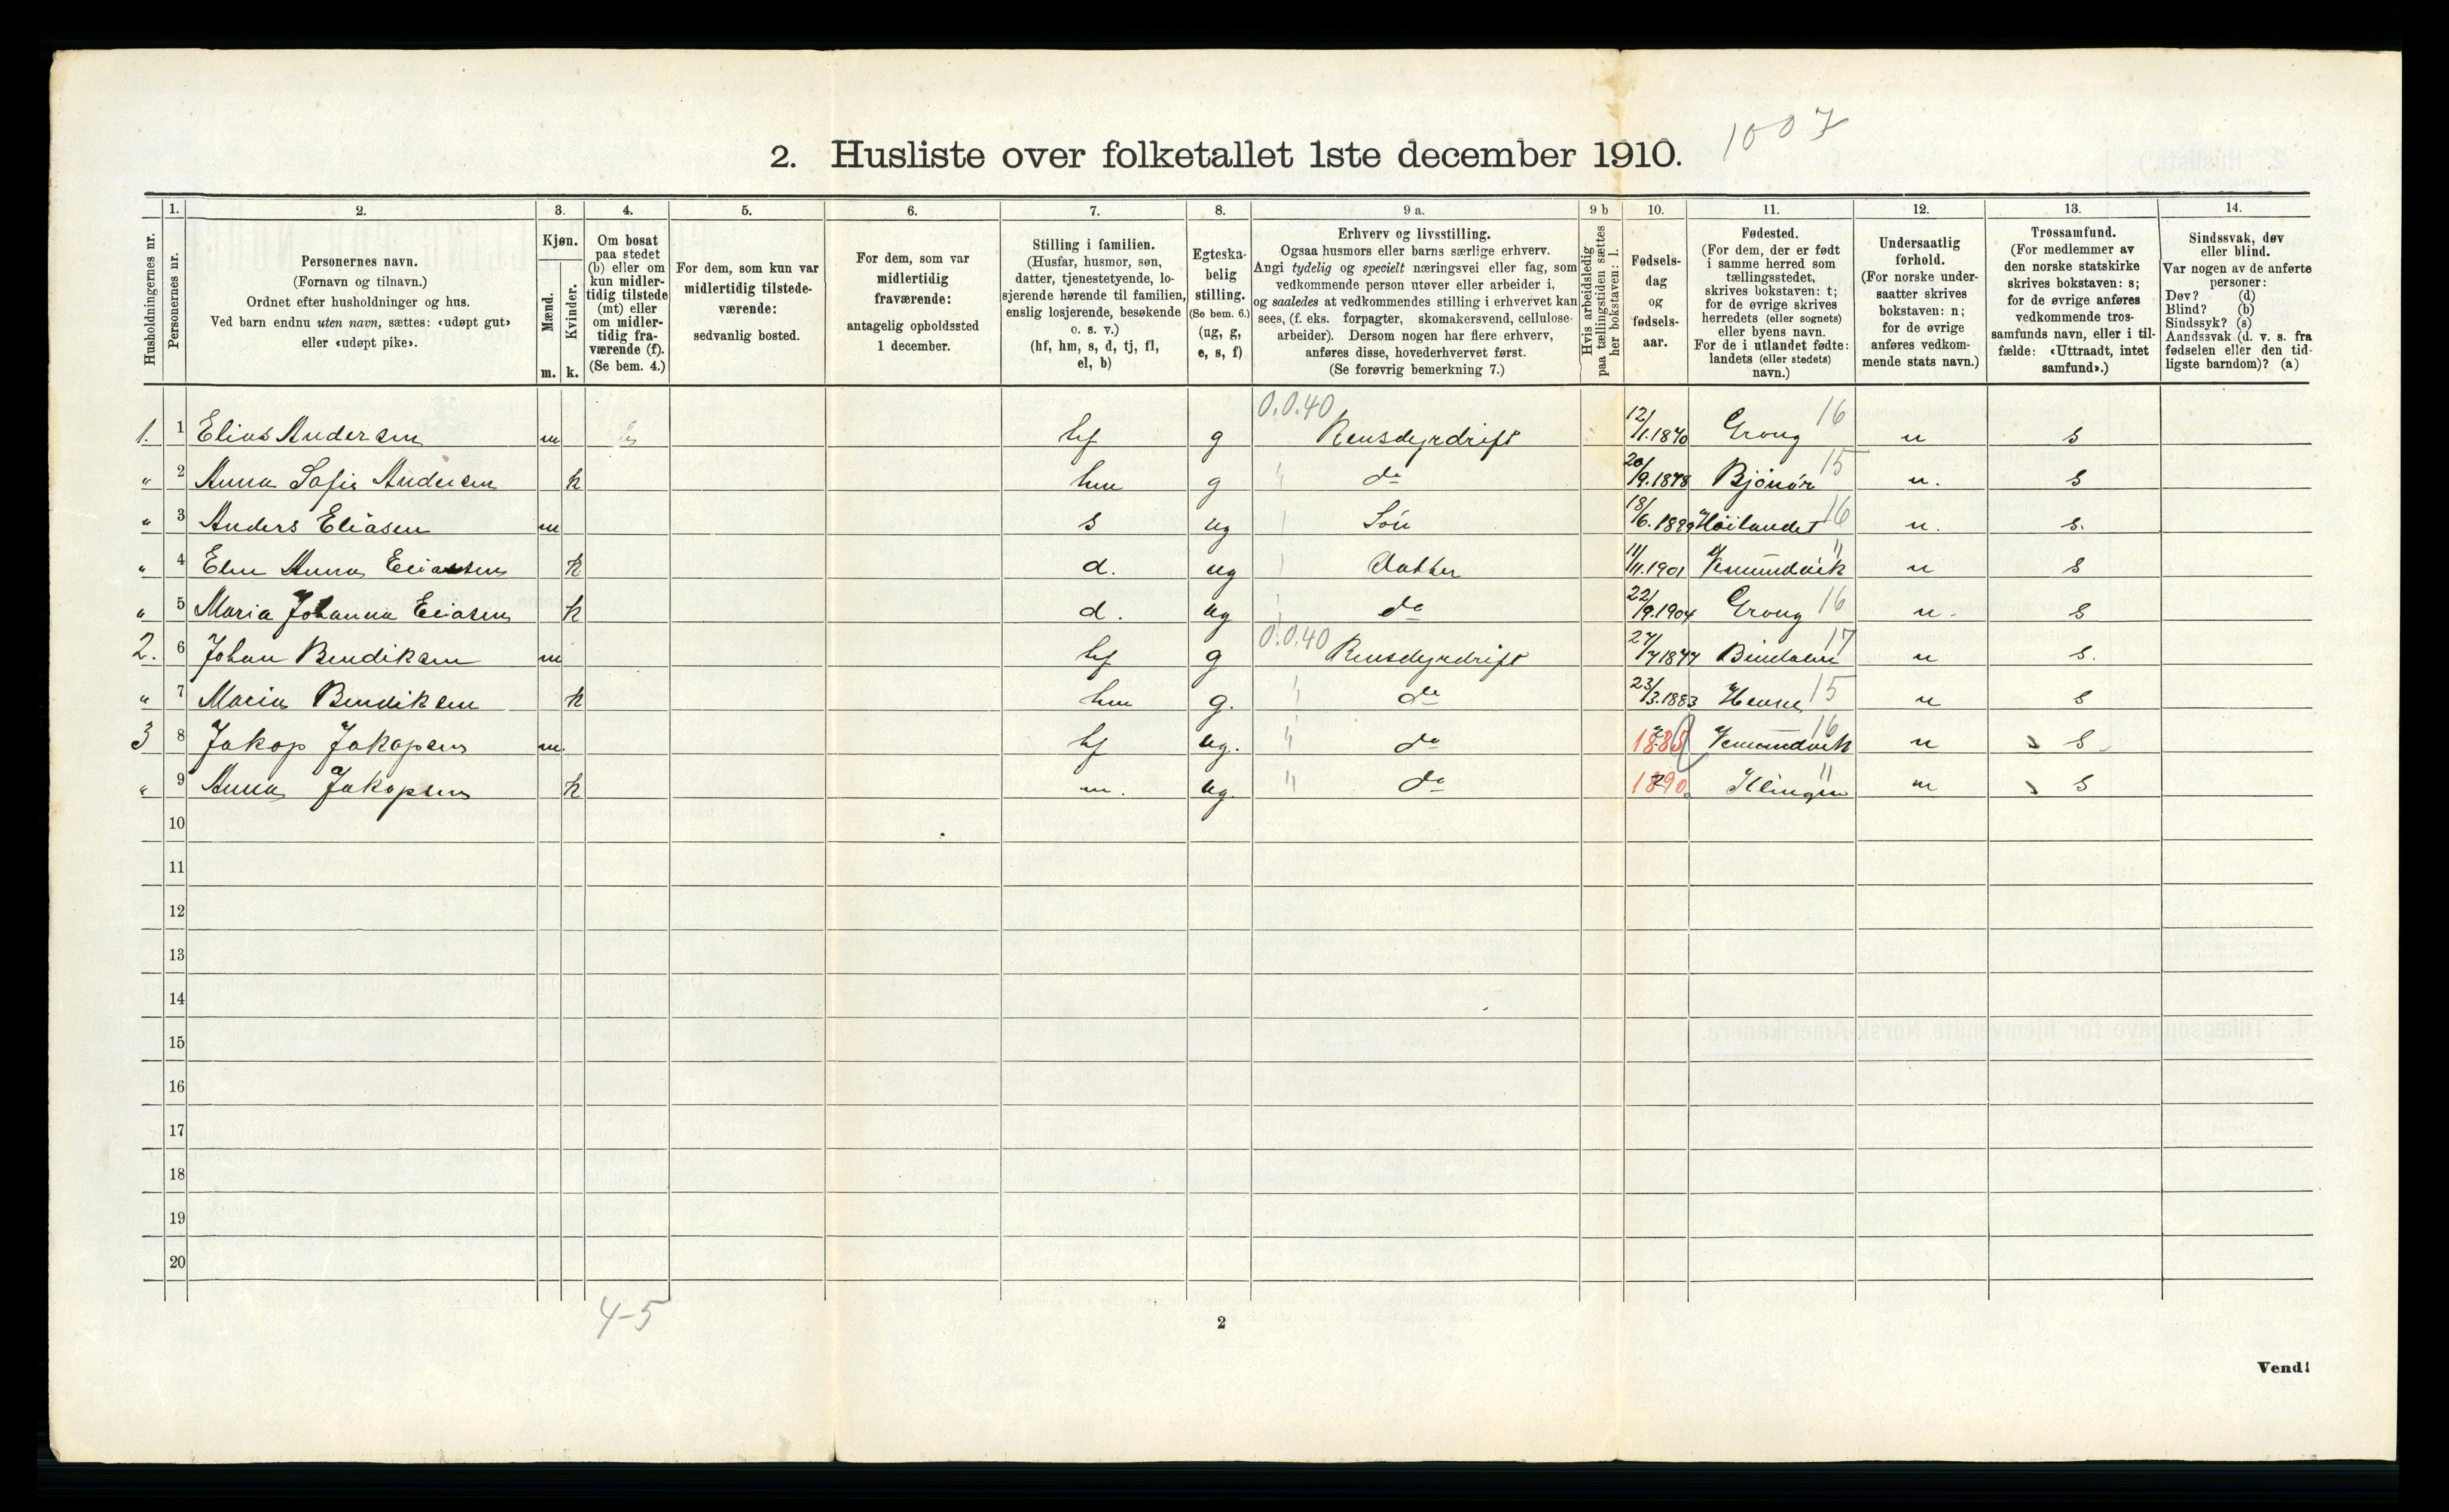 1007
2. Husliste over folketallet 1ste december 1910.
Husholdningernes nr.
1. Personernes nr.
2. Personernes navn.
(Fornavn og tilnavn.)
Ordnet efter husholdninger og hus.
Ved barn endnu uten navn, sættes: «udøpt gut»
eller «udøpt pike».
3. Kjøn.
Mænd. m.
Kvinder. k.
4. Om bosat
paa stedet
(b) eller om
kun midler-
tidig tilstede
(mt) eller
om midler-
tidig fra-
værende (f).
(Se bem. 4.)
5. For dem, som kun var
midlertidig tilstede-
værende:
sedvanlig bosted.
6. For dem, som var
midlertidig
fraværende:
antagelig opholdssted
1 december.
7. Stilling i familien.
(Husfar, husmor, søn,
datter, tjenestetyende, lo-
sjerende hørende til familien,
enslig losjerende, besøkende
o. s. v.)
(hf, hm, s, d, tj, fl,
el, b)
8. Egteska-
belig
stilling.
(Se bem. 6.)
(ug, g,
e, s, f)
9 a. Erhverv og livsstilling.
Ogsaa husmors eller barns særlige erhverv.
Angi tydelig og specielt næringsvei eller fag, som
vedkommende person utøver eller arbeider i,
og saaledes at vedkommendes stilling i erhvervet kan
sees, (f. eks. forpagter, skomakersvend, cellulose-
arbeider). Dersom nogen har flere erhverv,
anføres disse, hovederhvervet først.
(Se forøvrig bemerkning 7.)
9 b Hvis arbeidsledig
paa tællingstiden sættes
her bokstaven: l.
10. Fødsels-
dag
og
fødsels-
aar.
11. Fødested.
(For dem, der er født
i samme herred som
tællingsstedet,
skrives bokstaven: t;
for de øvrige skrives
herredets (eller sognets)
eller byens navn.
For de i utlandet fødte:
landets (eller stedets)
navn.)
12. Undersaatlig
forhold.
(For norske under-
saatter skrives
bokstaven: n;
for de øvrige
anføres vedkom-
mende stats navn.)
13. Trossamfund.
(For medlemmer av
den norske statskirke
skrives bokstaven: s;
for de øvrige anføres
vedkommende tros-
samfunds navn, eller i til-
fælde: «Uttraadt, intet
samfund».)
14. Sindssvak, døv
eller blind.
Var nogen av de anførte
personer:
Døv? (d)
Blind? (b)
Sindssyk? (s)
Aandssvak (d. v. s. fra
fødselen eller den tid-
ligste barndom)? (a)
1. 1 Elias Andersen m hf g 0.0.40 Rensdyrdrift 12/1.1870 Grong 16 n s
" 2 Anna Sofie Andersen k hm g " do 20/9.1878 Bjönör 15 n. s
" 3 Anders Eliasen m s ug Sön 18/6.1899 Höilandet 16 n. s.
" 4 Elen Anna Eliassen k d. ug Datter 11/11.1901 Vemundvik " n s
" 5 Maria Johanna Eliasen k d. ug do 22/9.1904 Grong 16 n. s
2. 6 Johan Bendiksen m hf g 0.0.40 Rensdyrdrift 27/7 1877 Bindalen 17 n s.
" 7 Maria Bendiksen k hm g. " do 23/3.1883 15 n s
3 8 Jakop Jakopsen m. hf ug. " do 1885 Vemundvik 16 n s
" 9 Anna Jakopsen k m. ug. " do 1890 Klingen " n s
10
11
12
13
14
15
16
17
18
19
20
4-5
2
Vend!